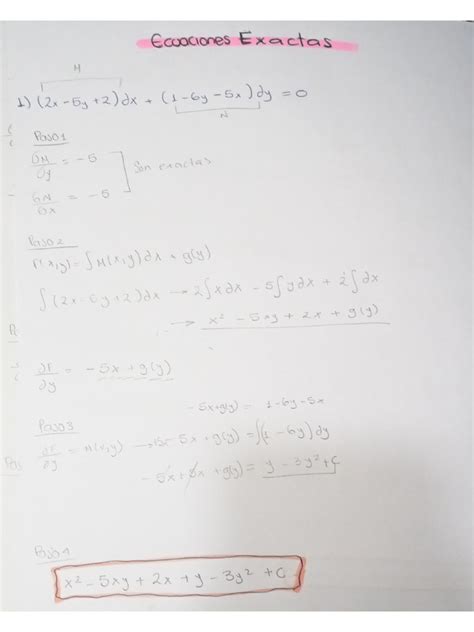 Ecuaciones Exactas
M
1) (2x - 5y + 2) dx + (1 - 6y - 5x) dy = 0
N
Paso 1
∂M/∂y = -5
Son exactas
∂N/∂x = -5
Paso 2
F(x,y) = ∫M(x,y)dx + g(y)
∫(2x - 5y + 2)dx → 2∫xdx - 5∫ydx + 2∫dx
→ x² - 5xy + 2x + g(y)
∂F/∂y = -5x + g(y)
-5x+g(y) = 1-6y-5x
Paso 3
∂F/∂y = N(x,y) → - 5x + g(y) = ∫(1 - 6y) dy
- 5x + 5x + g(y) = y - 3y² + C
Paso 4
x² - 5xy + 2x + y - 3y² + C